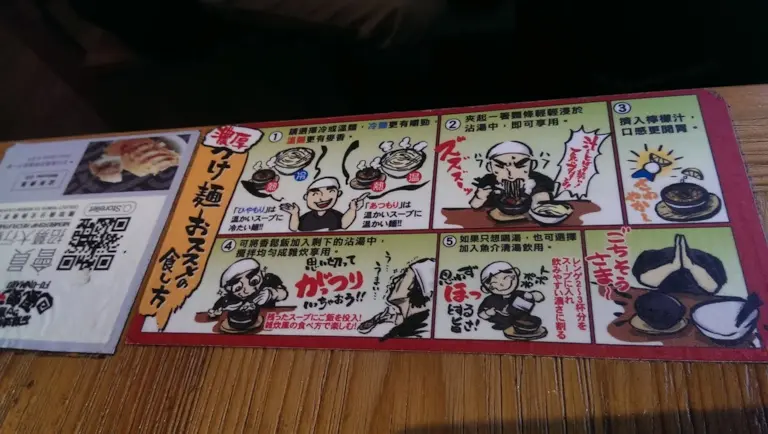 濃厚
つけ麺おススメの
食し方
①
請選擇冷或溫麵,冷麵更有嚼勁,
溫麵更有麥香。
熱
冷
熱
温
「ひやもり」は
温かいスープに
冷たい麺!!
「あつもり」は
温かいスープに
温かい麺!!
②
夾起一箸麵條輕輕浸於
沾湯中,即可享用。
ズズズッ
③
擠入檸檬汁,
口感更開胃。
さわ
やか〜
④
可將香鬆飯加入剩下的沾湯中,
攪拌均勻成雜炊享用。
思い切って
がっつり
いっちゃおう!!
うまい
残ったスープにご飯を投入!
雑炊風の食べ方で楽しむ!
⑤
如果只想喝湯,也可選擇
加入魚介清湯飲用。
思わず
ほっ
とする
旨さ!
レンゲ2〜3杯分を
スープに入れ
飲みやすい濃さに割る
ごちそう
さま〜